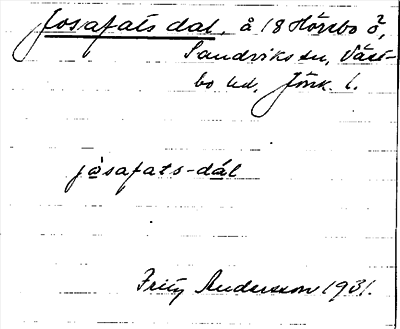 Josafats dal, å 18 Hörsbo ö,
Sandviks sn, Väst-
bo hd, Jönk. l.
jòsafats-dál
Fritz Andersson 1931.